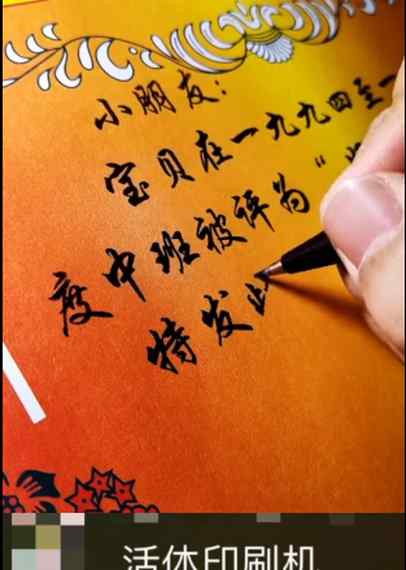 小朋友:
宝贝在一九九四至一
度中班被评为"
特发此
活体印刷机